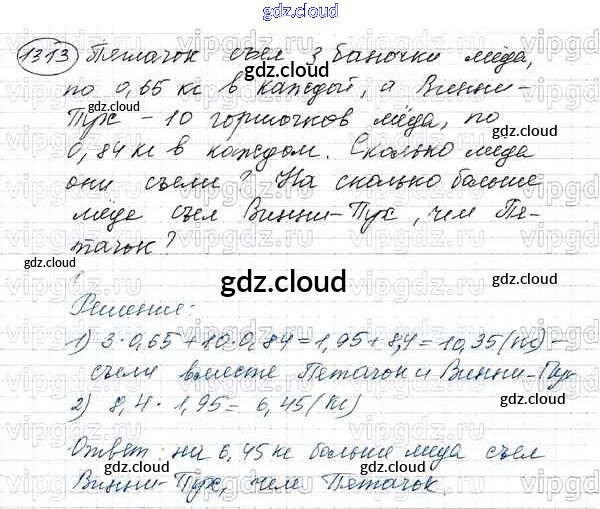 gdz.cloud
1313 Пятачок съел 3 баночки мёда,
по 0,65 кг в каждой, а Винни-
Пух - 10 горшочков мёда, по
0,84 кг в каждом. Сколько мёда
они съели? На сколько больше
мёда съел Винни-Пух, чем Пя-
тачок?
Решение:
1) 3·0,65+10·0,84=1,95+8,4=10,35(кг) -
съели вместе Петачок и Винни-Пух
2) 8,4 · 1,95 = 6,45 (кг)
Ответ: на 6,45 кг больше меда съел
Винни-Пух, чем Пятачок.
gdz.cloud
gdz.cloud
gdz.cloud
gdz.cloud
gdz.cloud
gdz.cloud
gdz.cloud
gdz.cloud
gdz.cloud
vipgdz